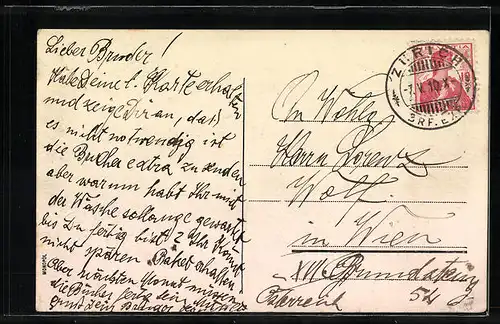 Lieber Bruder!
Habe Deine l. Karte erhalten
und zeige Dir an, daß
es nicht notwendig ist
die Bücher extra zu senden
aber warum habt Ihr mit
der Wäsche so lange gewartet
bis Du fertig bist? Ihr könnt
nicht später Paket erhalten
aber nächsten Monat müssen
die Bücher fertig sein
ZÜRICH
BRF. EX.
An Wohlg.
Herrn Lorenz
Wolf
in Wien
XIII
54
Österreich